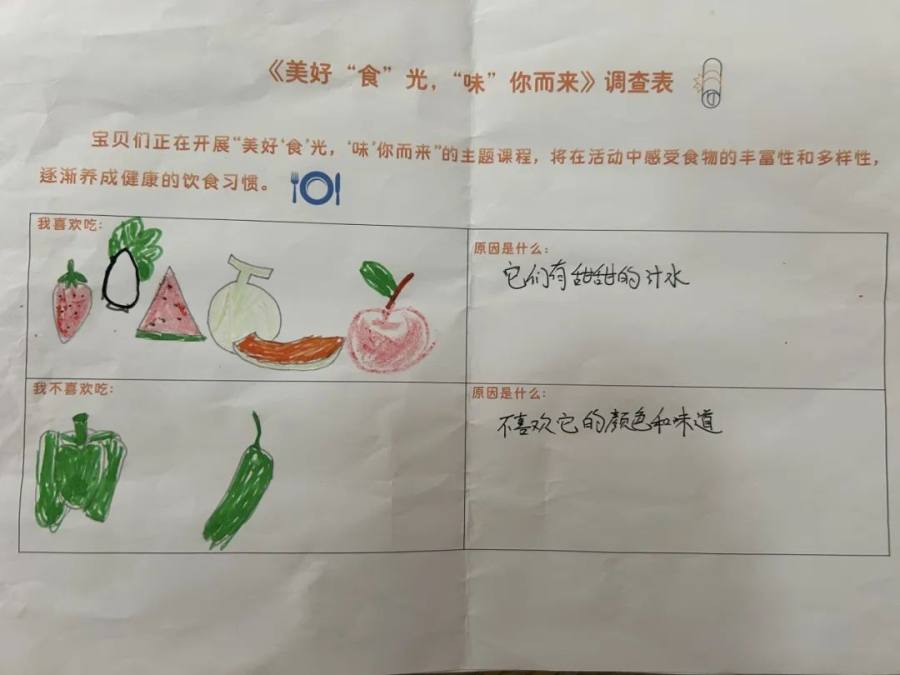 《美好“食”光，“味”你而来》调查表
宝贝们正在开展“美好‘食’光，‘味’你而来”的主题课程，将在活动中感受食物的丰富性和多样性，
逐渐养成健康的饮食习惯。
我喜欢吃：
原因是什么：
它们有甜甜的汁水
我不喜欢吃：
原因是什么：
不喜欢它的颜色和味道